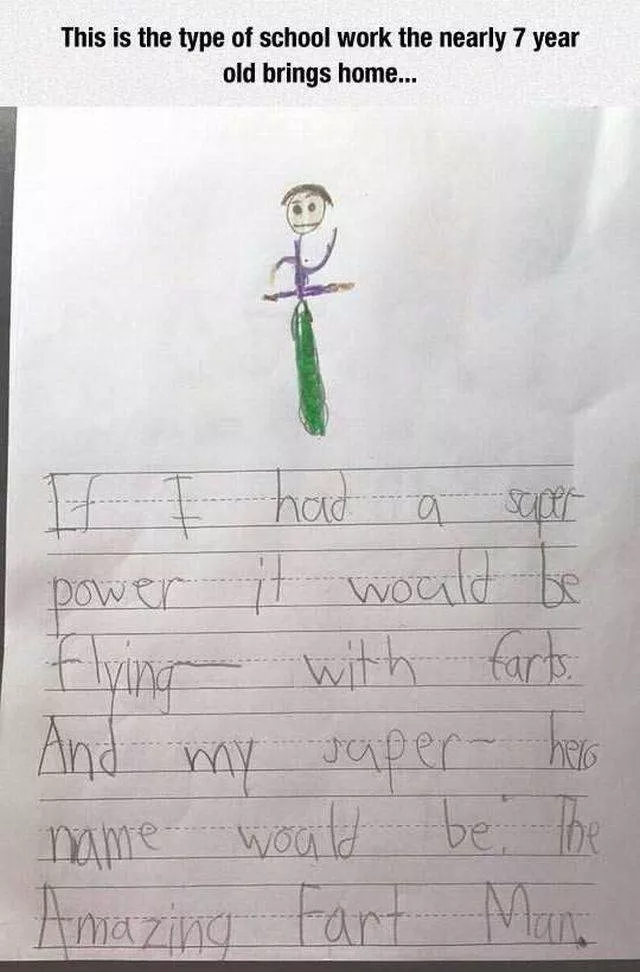 This is the type of school work the nearly 7 year
old brings home...
If I had a super
power it would be
flying— with farts.
And my super- hero
name would be: The
Amazing Fart Man.